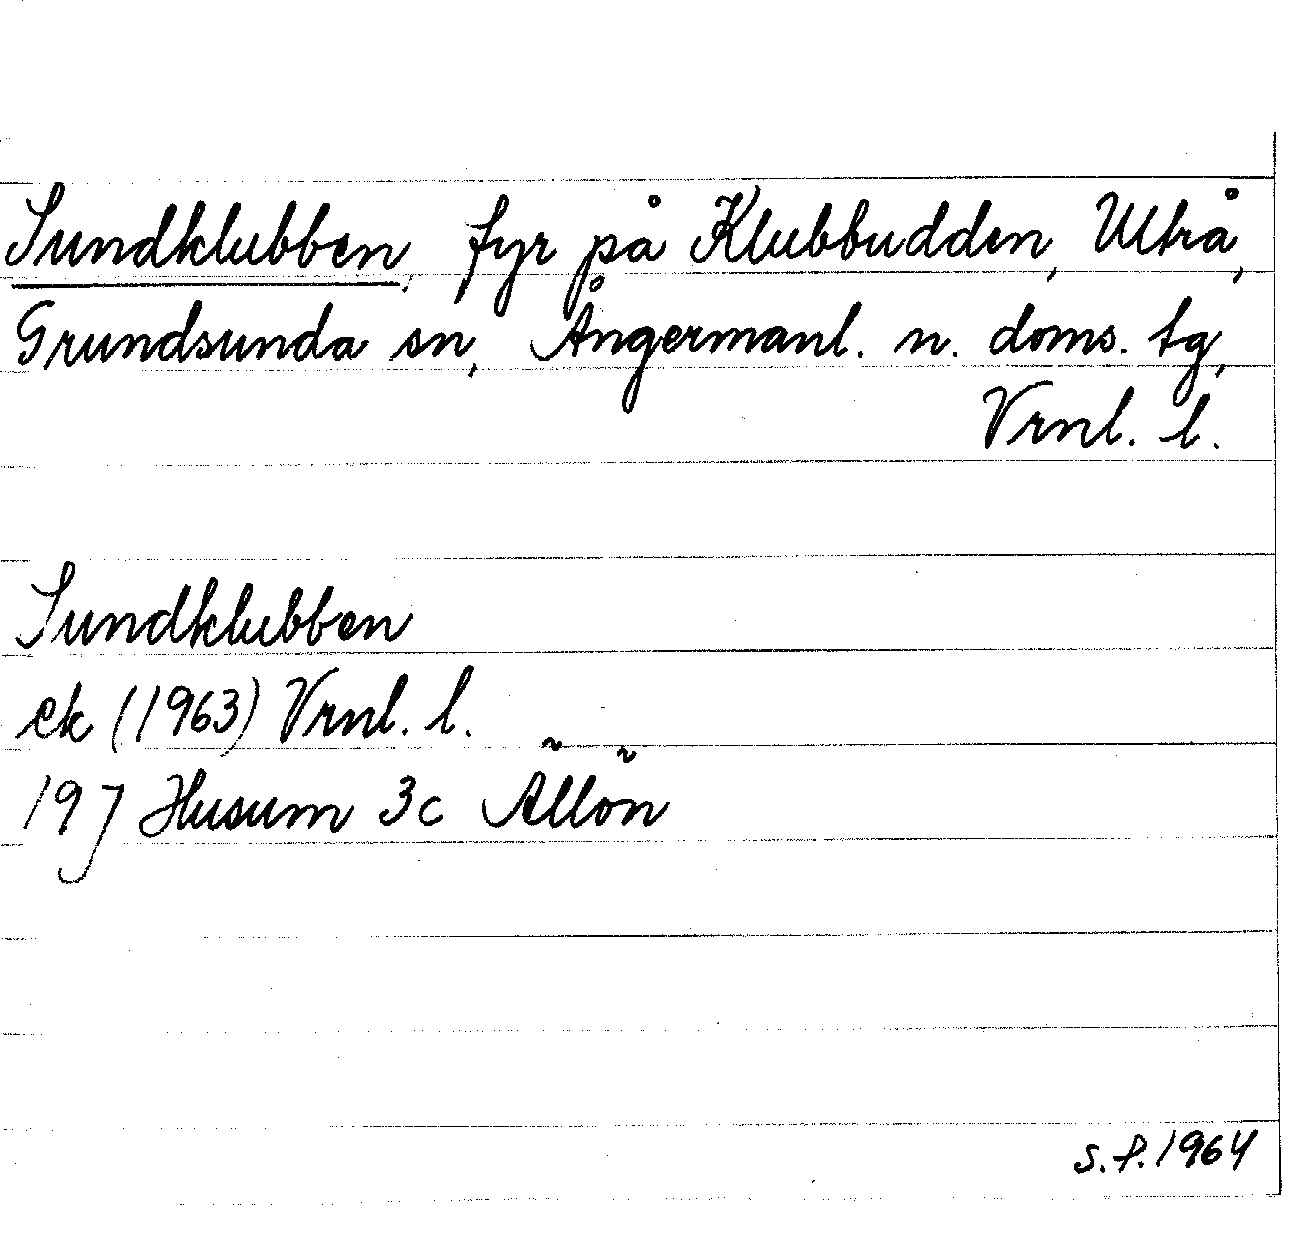 Sundklubben, fyr på Klubbudden, Utrå,
Grundsunda sn, Ångermanl. n. doms. tg,
Vrnl. l.
Sundklubben
ek (1963) Vrnl. l.
19 J Husum 3c Ällön
s. f. 1964